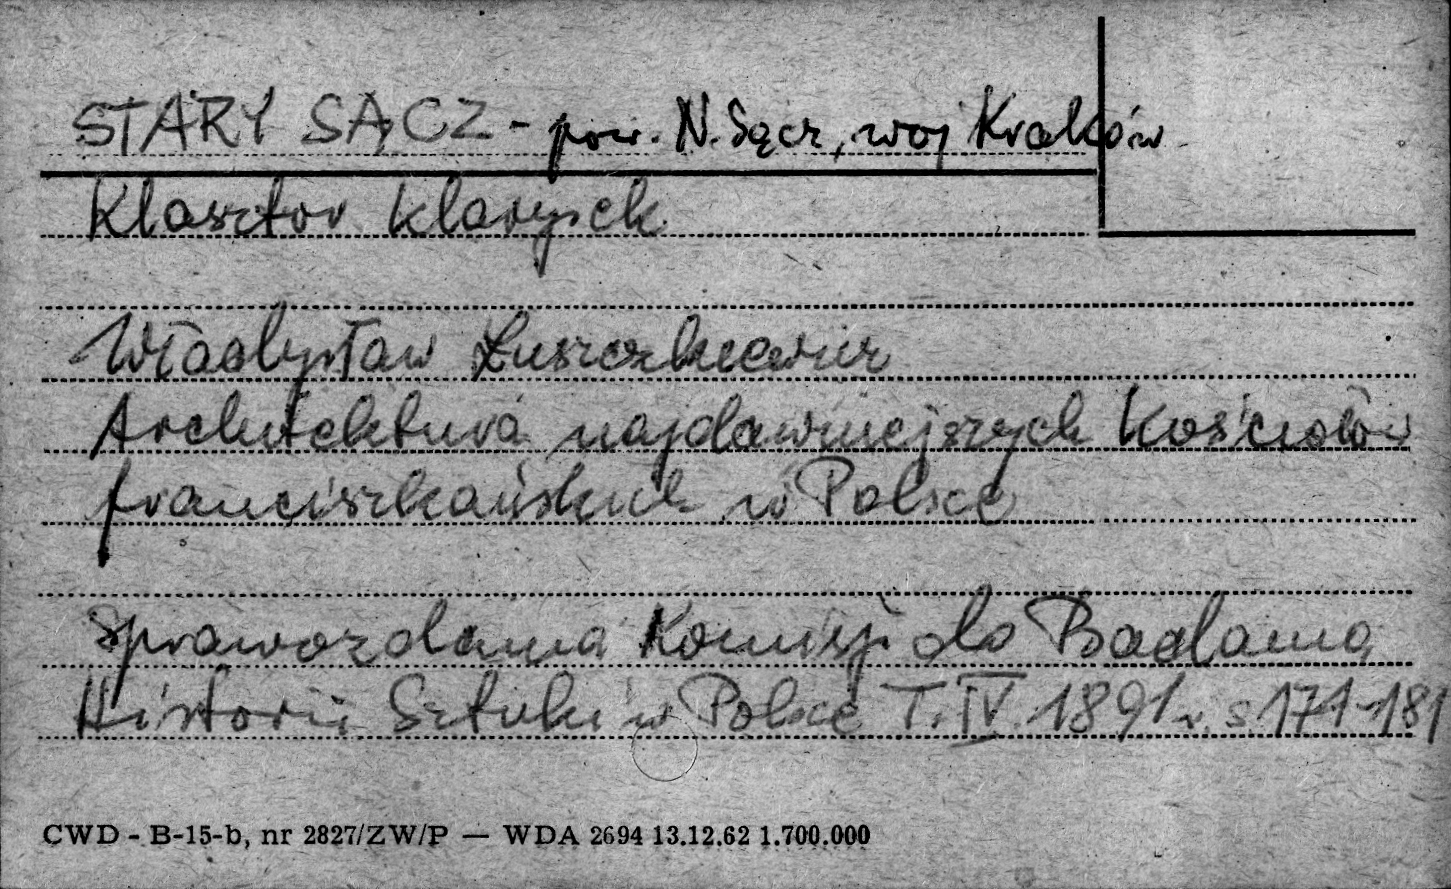 STARY SĄCZ - pow. N. Sącz, woj Kraków
Klasztor Klarysek
Władysław Łuszczkiewicz
Architektura najdawniejszych Kościołów
franciszkańskich w Polsce
Sprawozdania Komisji do Badania
Historii Sztuki w Polsce T. IV. 1891 r. s 171-181
CWD - B-15-b, nr 2827/ZW/P — WDA 2694 13.12.62 1.700.000